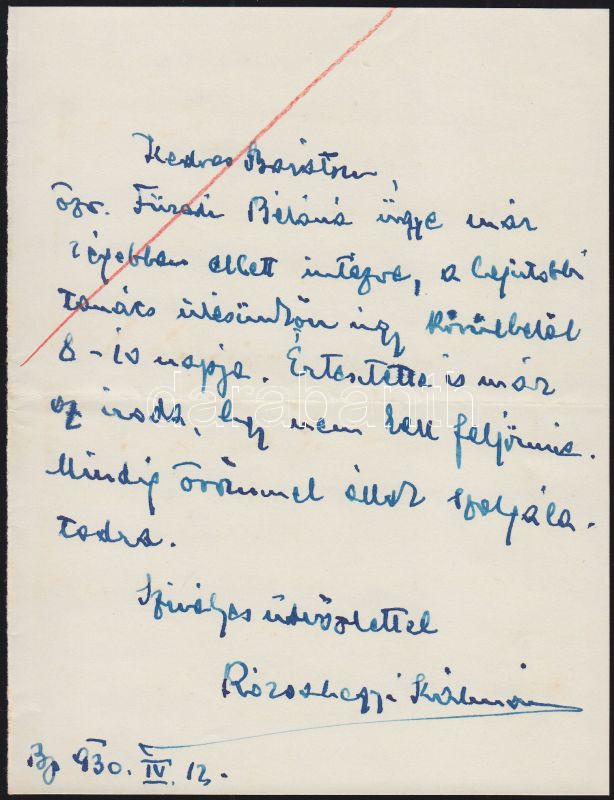 Kedves Barátom,
özv. Füredi Béláné ügye már
régebben el lett intézve, a legutóbbi
tanács ülésünkön úgy körülbelöl
8-10 napja. Értesítette is már
az iroda, hogy nem kell feljönnie.
Mindig örömmel állok szolgála-
todra.
Szivélyes üdvözlettel
Rózsahegyi Kálmán
Bp 930. IV. 12.
darabanth